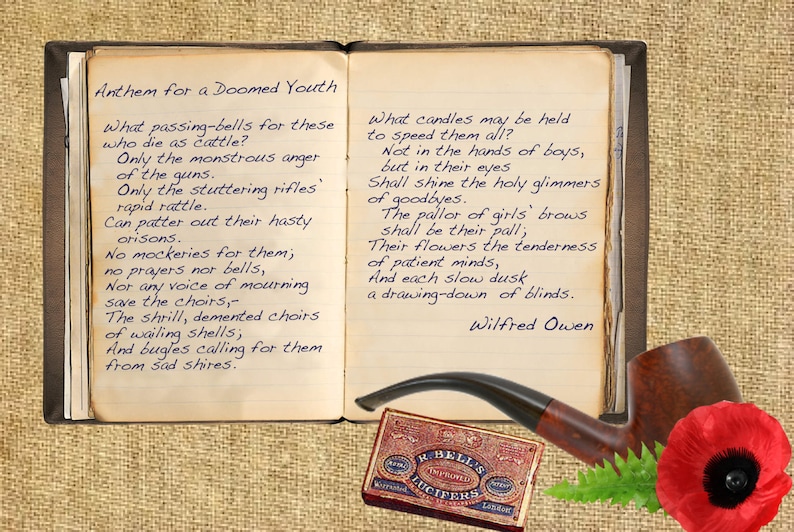 Anthem for a Doomed Youth
What passing-bells for these
who die as cattle?
Only the monstrous anger
of the guns.
Only the stuttering rifles`
rapid rattle.
Can patter out their hasty
orisons.
No mockeries for them;
no prayers nor bells,
Nor any voice of mourning
save the choirs,-
The shrill, demented choirs
of wailing shells;
And bugles calling for them
from sad shires.
What candles may be held
to speed them all?
Not in the hands of boys,
but in their eyes
Shall shine the holy glimmers
of goodbyes.
The pallor of girls` brows
shall be their pall;
Their flowers the tenderness
of patient minds,
And each slow dusk
a drawing-down of blinds.
Wilfred Owen
R. BELL'S
ROYAL
IMPROVED
PATENT
LUCIFERS
Warranted
London